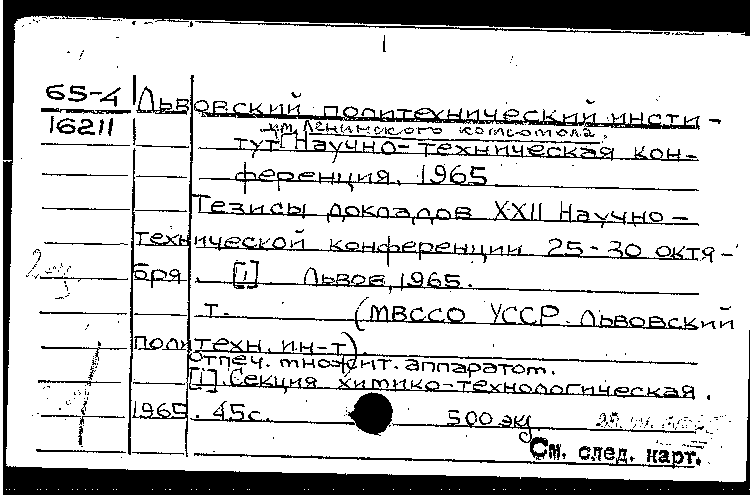 65-4 Львовский политехнический инсти-
16211
им. Ленинского комсомола.
тут Научно-техническая кон-
ференция. 1965
Тезисы докладов XXII Научно-
технической конференции 25-30 октя-
бря. [1] Львов, 1965.
т. (МВССО УССР. Львовский
политехн. ин-т).
Отпеч. множит. аппаратом.
[1]. Секция химико-технологическая.
1965. 45с. 500 экз.
См. след. карт.